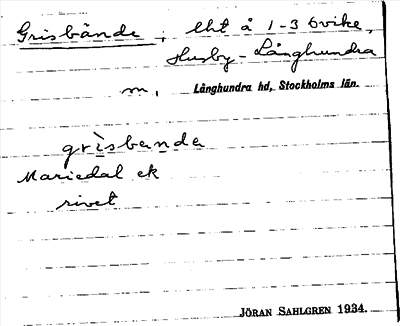 Grisbände, lht å 1-3 Övike,
Husby-Långhundra
m, Långhundra hd, Stockholms län.
grìsbanda
Mariedal ek
rivet
JÖRAN SAHLGREN 1934.